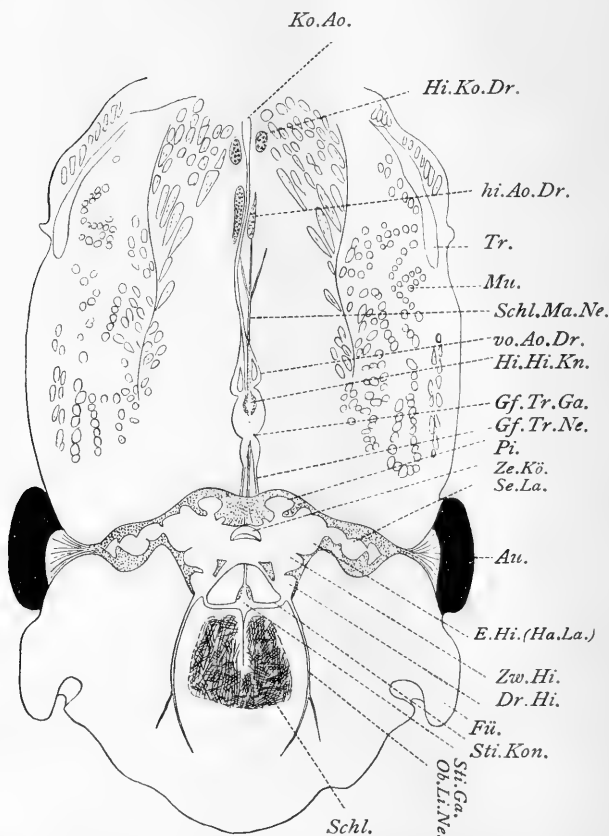 Ko.Ao.
Hi.Ko.Dr.
hi.Ao.Dr.
Tr.
Mu.
Schl.Ma.Ne.
vo.Ao.Dr.
Hi.Hi.Kn.
Gf.Tr.Ga.
Gf.Tr.Ne.
Pi.
Ze.Kö.
Se.La.
Au.
E.Hi.(Ha.La.)
Zw.Hi.
Dr.Hi.
Fü.
Sti.Kon.
Sti.Ga.
Ob.Li.Ne.
Schl.